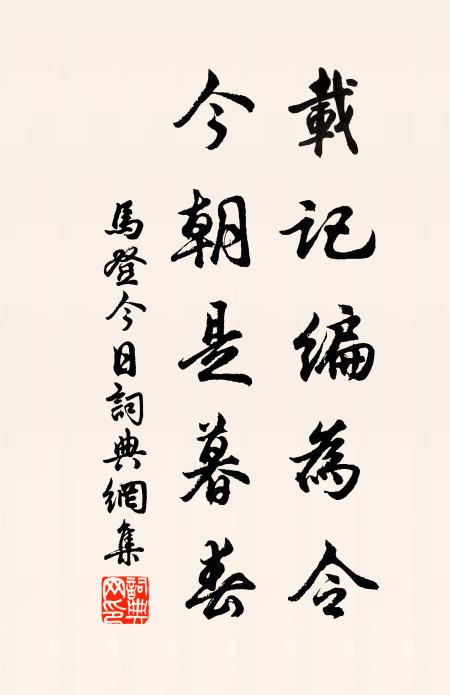 載記編為令
今朝是暮春
馬登今日詞典網集
詞典网印